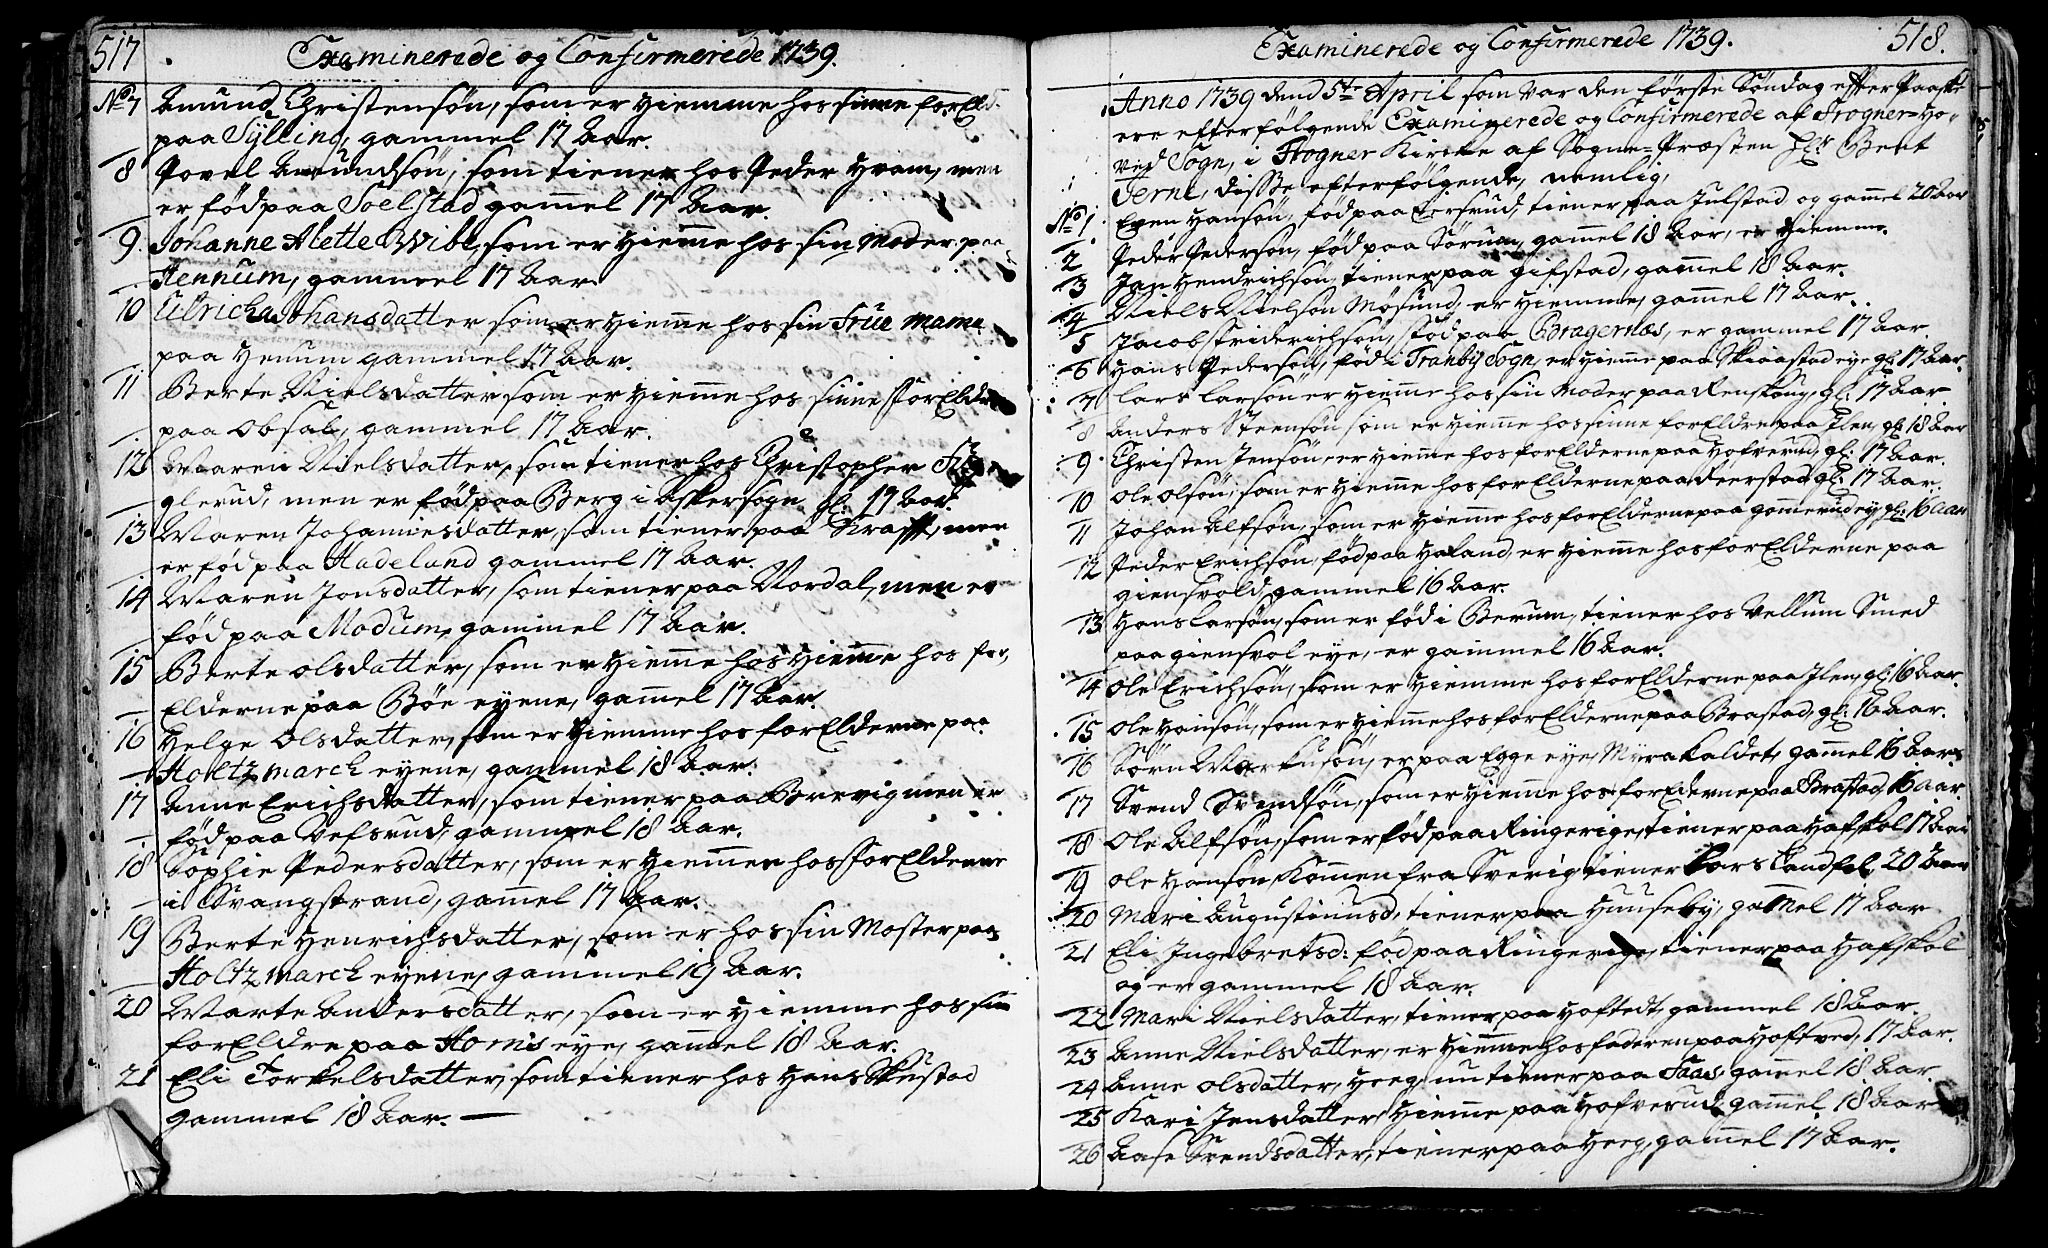 517
Examinerede og Confirmerede 1739.
No 7 Amund Christensøn, som er hiemme hos sinne forEld.
paa Sylling, gammel 17 Aar.
8 Povel Amundsøn, som tiener hos Peder Hvam, men
er fød paa Soelstad gam̄el 17 Aar.
9. Johanne Alette Wibe, som er hiem̄e hos sin Moder paa
Hennum, gammel 17 Aar.
10 Ulricha Johansdatter som er hiem̄e hos sin Frue Mama
paa Hennum gammel 17 Aar.
11 Berte Nielsdatter som er hiem̄e hos sinne ForEldre
paa Obsal, gammel 17 Aar.
12 Maren Nielsdatter, som tiener hos Christopher
glerud, men er fød paa Berg i Askersogn gl. 19 Aar.
13 Maren Johannesdatter, som tiener paa Krafft, men
er fød paa Hadeland gammel 17 Aar.
14 Maren Jonsdatter, som tiener paa Nordal, men er
fød paa Modum, gammel 17 Aar.
15 Berte Olsdatter, som er hiem̄e hos hiem̄e hos for,
Elderne paa Böe eyene, gam̄el 17 Aar.
16 Helge Olsdatter, som er hiemme hos forElderne paa
Holtzmarch eyene, gammel 18 Aar.
17 Anne Erichsdatter, som tiener paa Brevig men er
fød paa Vefsrud, gammel 18 Aar.
18 Sophie Pedersdatter, som er hiem̄en hos ForElderne
i Svangstrand, gam̄el 17 Aar.
19 Berte Henrichsdatter, som er hos sin Moster paa
Holtzmarch eyene, gammel 19 Aar.
20 Marte Andersdatter, som er hiemme hos sin
forEldre paa Hornis eye, gam̄el 18 Aar.
21 Eli Torkelsdatter, som tiener hos Hans Skustad
gammel 18 Aar.
Examinerede og Confirmerede 1739. 518.
Anno 1739 dend 5te April som var den første Søndag efter Paaske
ere efterfølgende Examinerede og Confirmerede af Frogner-Ho-
ved Sogn, i Frogner Kircke af Sogne-Præsten Hr Bent
Terne, disse efterfølgende, nemlig,
No 1. Even Hansøn, fød paa Corsrud, tiener paa Julstad og gam̄el 20 Aar
2 Peder Pedersøn, fød paa Sørum, gam̄el 18 Aar, er hiemme.
3 Jan Hendrichsøn, tiener paa Gifstad, gam̄el 18 Aar.
4 Niels Nielsøn Møsund, er hiemme, gam̄el 17 Aar.
5 Jacob Friderichsøn, fød paa Bragernæs, er gammel 17 Aar
6 Hans Pedersøn, fød i Tranby Sogn, er hiem̄e paa Skiæstad eye gl. 17 Aar.
7 Lars Larsøn er hiem̄e hos sin Moder paa Renskoug, gl. 17 Aar.
8 Anders Steensøn som er hiem̄e hos sinne forEldre paa Ilen, gl. 18 Aar
9. Christen Jensøn, er hiem̄e hos forElderne paa Hofverud, gl. 17 Aar.
10 Ole Olsøn, som er hiem̄e hos forElderne paa Reerstad gl. 17 Aar.
11 Johan Alfsøn, som er hiem̄e hos forElderne paa gom̄erud ey, gl. 16 Aar
12 Peder Erichsøn, fød paa Haland, er hiem̄e hos forElderne paa
giensvold, gammel 16 Aar.
13 Hans Larsøn, som er fød i Berum, tiener hos Vellum Smed
paa giensvol eye, er gammel 16 Aar.
14 Ole Erichsøn, som er hiemme hos forElderne paa Ilen, gl. 16 Aar.
15 Ole Hansøn, som er hiem̄e hos forElderne paa Brastad, gl. 16 Aar.
16 Sørn Markusøn, er paa Egge eye, Myra kaldet, gam̄el 16 Aar
17 Svend Svendsøn, som er hiem̄e hos forElderne paa Brastad, 16 Aar
18 Ole Alfsøn, som er fød paa Ringerige, tiener paa Hafskol 17 Aar
19 Ole Hansøn, kom̄en fra Sverig tiener Lars Landfal, 20 Aar
20 Mari Augustinusd, tiener paa Huuseby, gam̄el 17 Aar
21 Eli Ingebretsd: fød paa Ringerige, tiener paa Hafskol
og er gammel 18 Aar.
22 Mari Nielsdatter, tiener paa Hoftedt, gammel 18 Aar.
23 Anne Nielsdatter, er hiem̄e hos faderen paa Hoftved, 17 Aar.
24 Anne Olsdatter, Hoeg, nu tiener paa Faas, gam̄el 18 Aar
25 Kari Jensdatter, hiem̄e paa Hofverud, gam̄el 18 Aar
26 Aase Svendsdatter, tiener paa Hoeg, gam̄el 17 Aar.